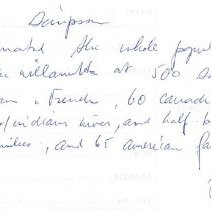 Simpson
mated the whole popul
e willamette at 500 so
an + French, 60 canad
w/indian wives, and half b
milies, and 65 american fa